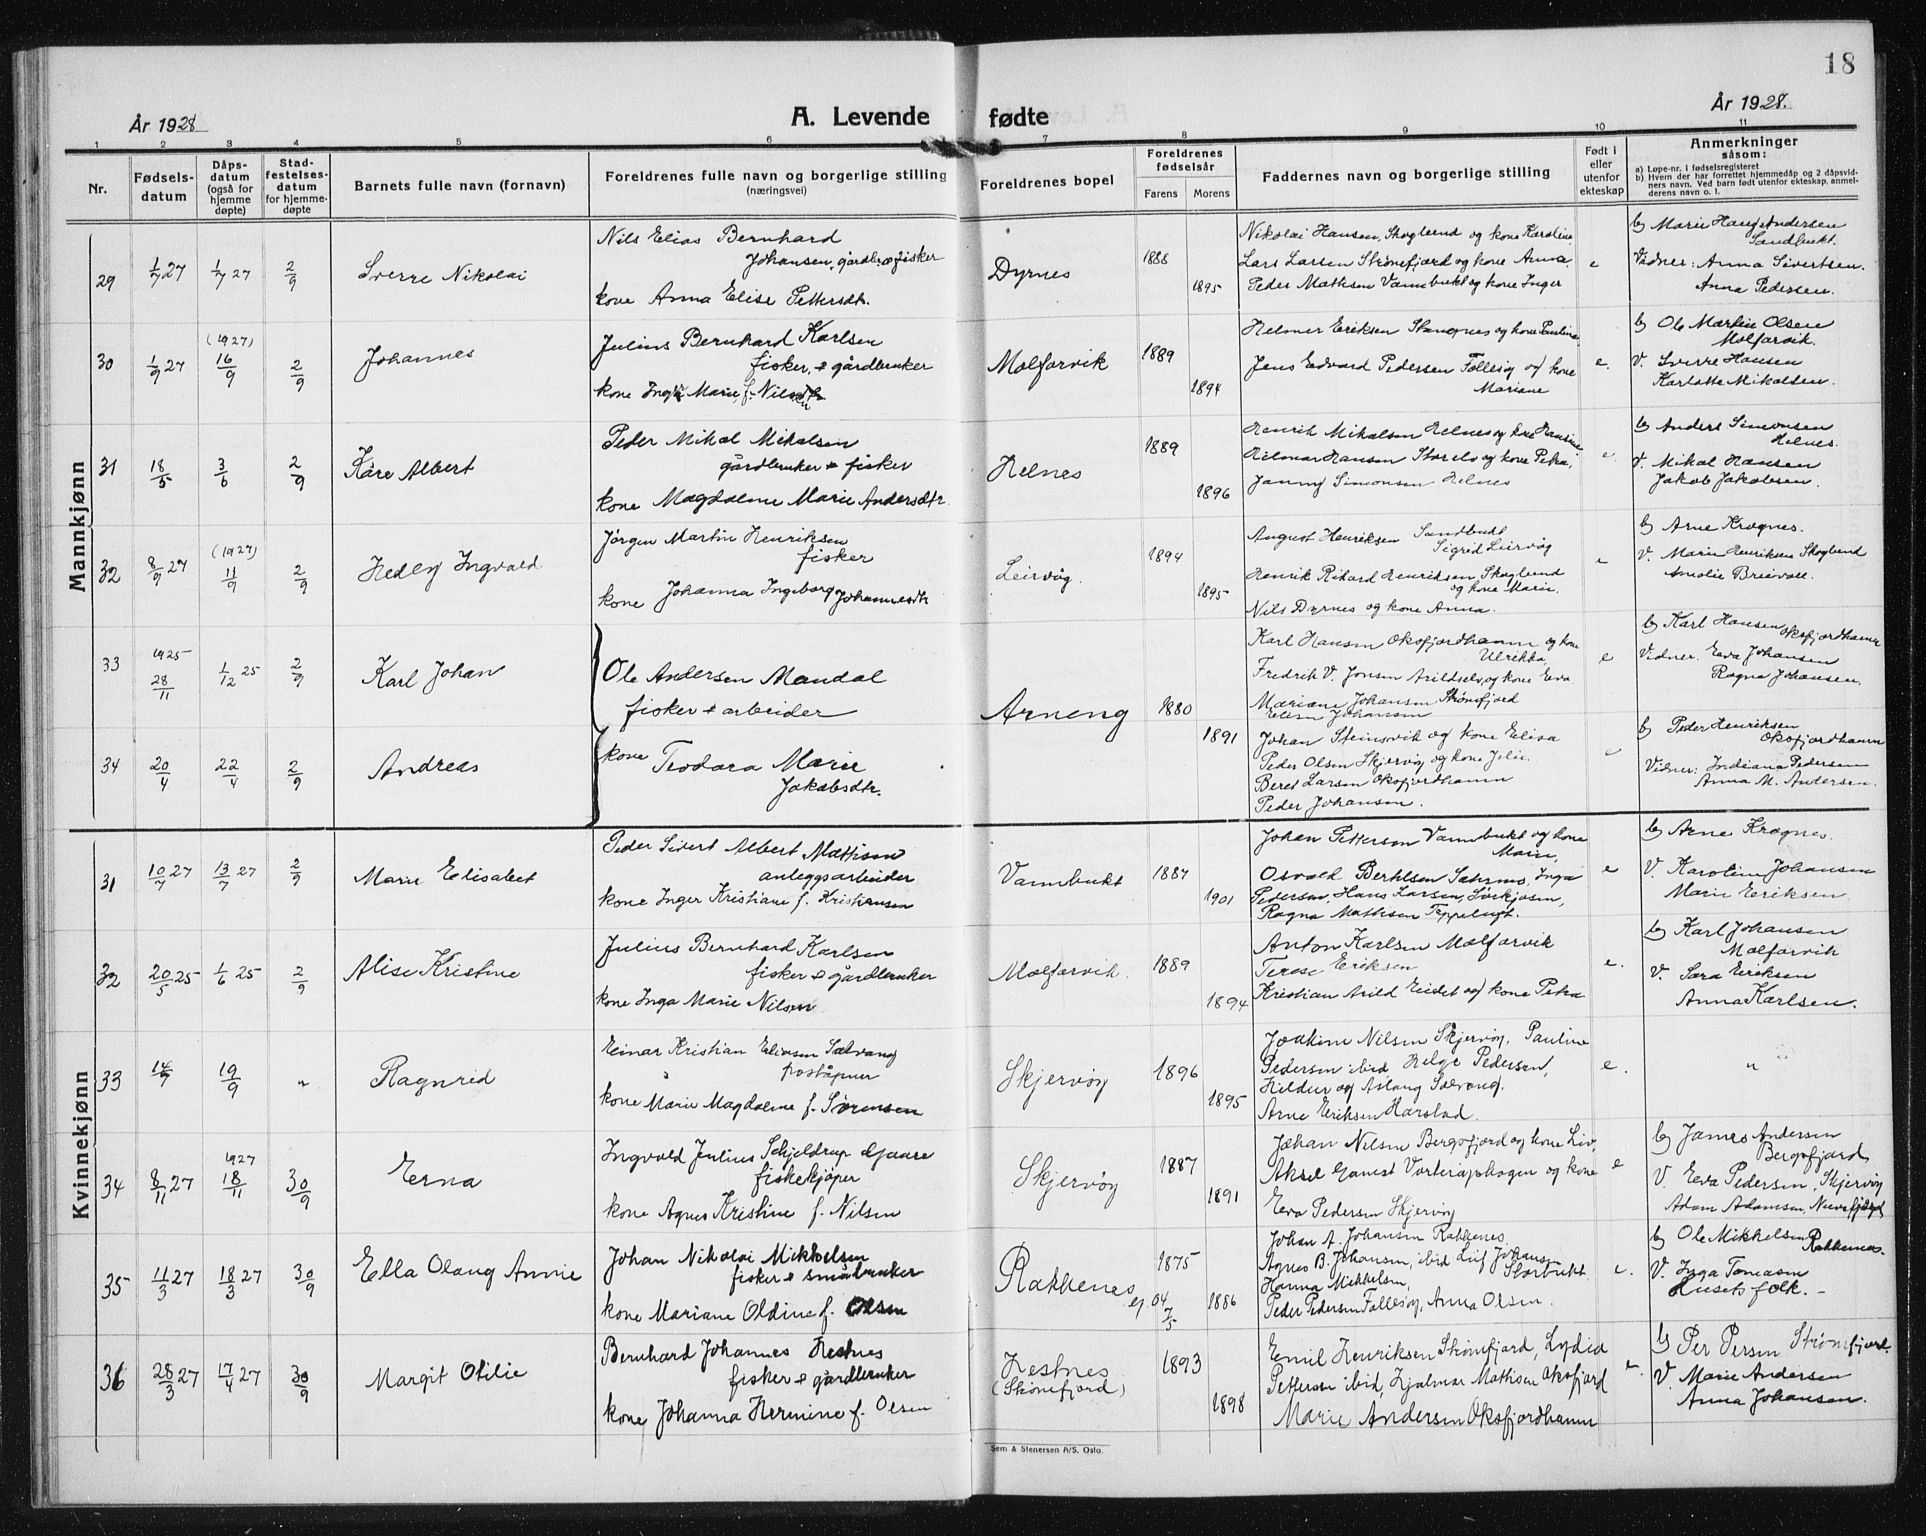 18
År 1928
A. Levende fødte
År 1928.
1 2 3 4 5 6 7 8 9 10 11
Nr.
Fødsels-
datum
Dåps-
datum
(også for
hjemme
døpte)
Stad-
festelses-
datum
for hjemme-
døpte
Barnets fulle navn (fornavn)
Foreldrenes fulle navn og borgerlige stilling
(næringsvei)
Foreldrenes bopel
Foreldrenes
fødselsår
Farens Morens
Faddernes navn og borgerlige stilling
Født i
eller
utenfor
ekteskap
Anmerkninger
såsom:
a) Løpe-nr. i fødselsregisteret
b) Hvem der har forrettet hjemmedåp og 2 dåpsvid-
ners navn. Ved barn født utenfor ekteskap, anmel-
derens navn o. l.
Mannkjønn
29 1/7 27 1/7 27 2/9 Sverre Nikolai
Nils Elias Bernhard
Johansen, gårdbr. & fisker
kone Anna Elise Pettersdtr.
Dyrnes 1888 1895
Nikolai Hansen, Skoglund og kone Karoline,
Lars Larsen Strømfjord og kone Anna.
Peder Mathsen Vannbukt og kone Inger
e
b) Marie Haug Andersen
Sandbukt.
Vidner: Anna Sivertsen.
Anna Pedersen.
30 1/9 27 (1927) 16/9 2/9 Johannes
Julius Bernhard Karlsen
fisker, & gårdbruker
kone Marie f.
Molfarvik 1889 1894
Helmer Eriksen Stangnes og kone Pauline
Jens Edvard Pedersen Follesøy og kone
Mariane
e.
b) Ole Martin Olsen
Molfarvik.
V. Sverre Hansen
Karlotte Mikalsen.
31 18/5 3/6 2/9 Kåre Albert
Peder Mikal Mikalsen
gårdbruker & fisker
kone Magdalene Marie Andersdtr.
Helnes 1889 1896
Henrik Mikalsen Helnes og kone Hansine
Hilmar Hansen Storelv og kone Petra,
Janny Simonsen Helnes
e
b) Anders Simonsen
Helnes.
V. Mikal Hansen
Jakob Jakobsen.
32 8/9 27 (1927) 11/9 2/9 Hedly Ingvald
Jørgen Martin Henriksen
fisker
kone Johanna Ingeborg Johannesdtr
Leirvåg. 1894 1895
August Henriksen Sandbukt
Sigrid Leirvåg
Henrik Rikard Henriksen Skoglund
og kone Marie.
Nils Dyrnes og kone Anna.
e
b) Arne Krognes.
V. Marie Henriksen Skoglund
Amalie Breivoll.
33 1925 28/11 1/12 25 2/9 Karl Johan
Ole Andersen Mandal
fisker & arbeider
Arneng 1880
Karl Hansen Oksfjordhamn og kone
Ulrikka,
Fredrik V. Jensen Arildselv, og kone Eva
Mariane Johansen Strømfjord
Elisa Johansen
e
b) Karl Hansen Oksfjordhamn
Vidner. Eva Johansen
Ragna Johansen.
34 20/4 22/4 2/9 Andreas
kone Teodora Marie
Jakobsdtr.
1891
Johan Steinsvik og kone Elisa
Peder Olsen Skjervøy og kone Jelie.
Beret Larsen Oksfjordhamn
Peder Johansen.
e
b) Peder Henriksen
Oksfjordhamn
Vidner: Indiana Pedersen
Anna M. Andersen.
Kvinnekjønn
31 10/7 27 13/7 27 2/9 Marie Elisabet
Peder Sivert Albert Mathisen
anleggsarbeider
kone Inger Kristiane f. Kristiansen
Vannbukt 1887 1901
Johan Pettersen Vannbukt og kone
Marie,
Osvald Berthlsen Inga
Pedersen, Hans Larsen,
Ragna Mathisen
e
b) Arne Krognes.
V. Karoline Johansen
Marie Eriksen.
32 20/5 25 1/6 25 2/9 Alise Kristine
Julius Bernhard Karlsen
fisker & gårdbruker
kone Inga Marie Nilsen
Molfarvik. 1889 1894
Anton Karlsen Molfarvik
Terese Eriksen
Kristian Arild Eidet og kone Petra
e.
b) Karl Johansen
Molfarvik
V. Sara Eriksen
Anna Karlsen.
33 14/7 19/9 " Ragnrid
Einar Kristian Eliasen Solvang
poståpner
kone Marie Magdalene f. Sørensen
Skjervøy 1896 1895
Joakim Nilsen Skjervøy. Pauline
Pedersen ibid, Helge Pedersen,
Hildur og Aslaug Solvang.
Arne Eriksen Harstad.
e.
"
34 8/11 27 1927 18/11 30/9 Erna
Ingvald Julius Schjeldrup Gjaare
fiskekjøper
kone Agnes Kristine f. Nilsen
Skjervøy 1887 1891
Johan Nilsen Bergsfjord og kone Liv,
Aksel Ernest Vorterøyskogen og kone
Eva Pedersen Skjervøy
e
b) James Andersen
Bergsfjord
V. Eva Pedersen, Skjervøy
Adam Adamsen,
35 11/3 27 18/3 27 30/9 Ella Olaug Annie
Johan Nikolai Mikkelsen
fisker & småbruker
kone Mariane Oldine f. Olsen
Rakkenes 1875 1886
Johan A. Johansen Rakkenes.
Agnes B. Johansen, ibid Leif Johans.
Storbukt.
Hanna Mikkelsen,
Peder Pedersen Follesøy, Anna Olsen.
e.
b) Ole Mikkelsen Rakkenes
V. Inga Tomasen
Husets folk. –
36 28/3 27 17/4 27 30/9 Margit Otilie
Bernhard Johannes Hestnes
fisker & gårdbruker
kone Johanna Hermine f. Olsen
Hestnes
(Strømfjord)
1893 1898
Emil Henriksen Strømfjord, Lydia
Pettersen ibid, Hjalmar Mathisen Oksfjord
Marie Andersen Oksfjordhamn
e.
b) Per Persen Strømfjord.
V. Marie Andersen
Anna Johansen.
Sem & Stenersen A/S. Oslo.